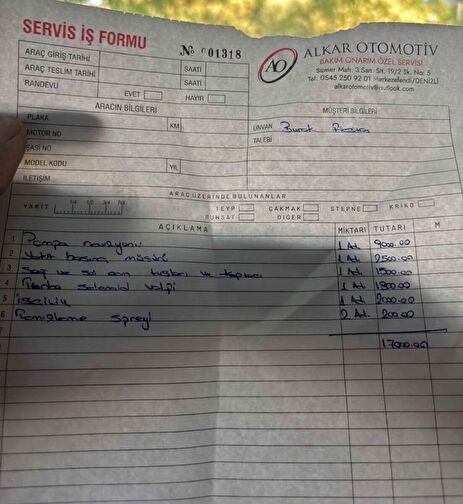 SERVİS İŞ FORMU
№ 001318
ALKAR OTOMOTİV
BAKIM ONARIM ÖZEL SERVİSİ
Sümer Mah. 3.San. Sit. 19/2 Sk. No: 5
Tel: 0545 250 92 01 Merkezefendi/DENİZLİ
alkarotomotiv@outlook.com
ARAÇ GİRİŞ TARİHİ SAATİ
ARAÇ TESLİM TARİHİ SAATİ
RANDEVU EVET HAYIR
ARACIN BİLGİLERİ
MÜŞTERİ BİLGİLERİ
PLAKA KM
ÜNVAN Burak
MOTOR NO
TALEBİ
ŞASİ NO
MODEL KODU YIL
İLETİŞİM
ARAÇ ÜZERİNDE BULUNANLAR
YAKIT 1/4 2/4 3/4 4/4 TEYP ÇAKMAK STEPNE KRİKO
RUHSAT DİĞER
AÇIKLAMA MİKTARI TUTARI M
1 Pompa 1 Ad. 9000.00
2 basınç müşürü 1 Ad. 2500.00
3 Sağ ve sol cam ve 1 Ad. 1500.00
4 valfi 1 Ad. 1800.00
5 işçilik 1 Ad. 2000.00
6 Temizleme spreyi 2 Ad. 200.00
17000.00